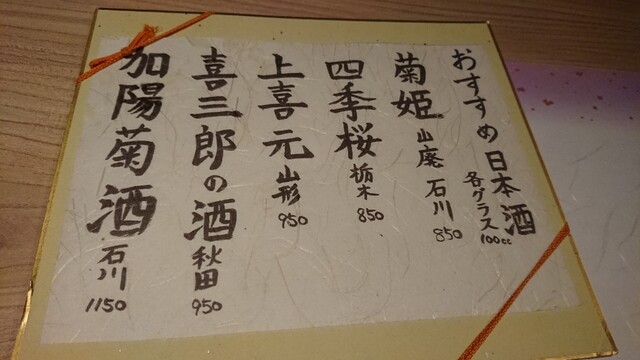 おすすめ日本酒
各グラス100cc
菊姫 山廃 石川 850
四季桜 栃木 850
上喜元 山形 950
喜三郎の酒 秋田 950
加陽菊酒 石川 1150